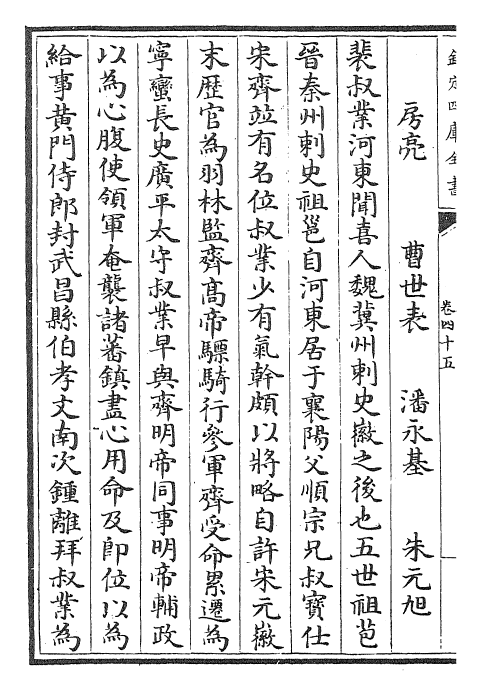 欽定四庫全書
卷四十五
房亮 曹世表 潘永基 朱元旭
裴叔業河東聞喜人魏冀州刺史徽之後也五世祖苞
晉秦州刺史祖邕自河東居于襄陽父順宗兄叔寶仕
宋齊竝有名位叔業少有氣幹頗以將略自許宋元徽
末歴官為羽林監齊髙帝驃騎行參軍齊受命累遷為
寧蠻長史廣平太守叔業早與齊明帝同事明帝輔政
以為心腹使領軍奄襲諸蕃鎮盡心用命及即位以為
給事黄門侍郎封武昌縣伯孝文南次鍾離拜叔業為